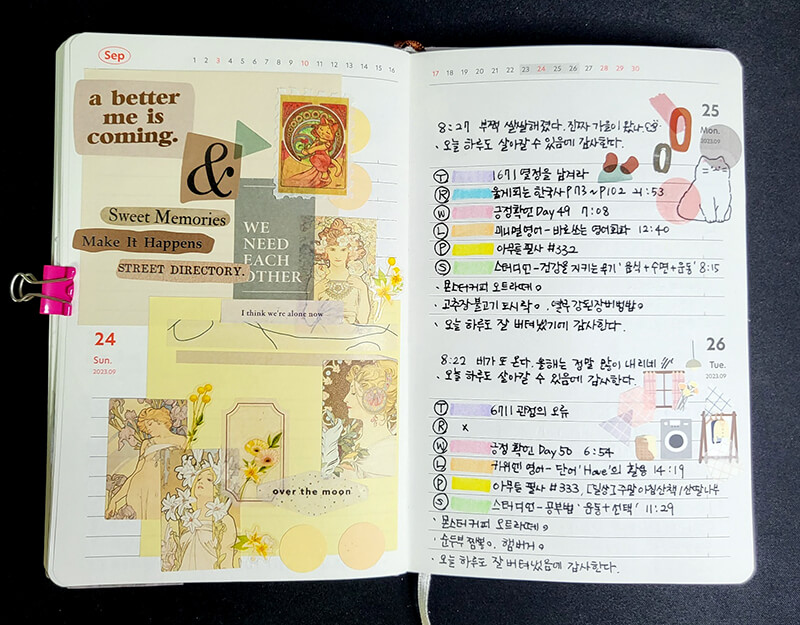 Sep
1 2 3 4 5 6 7 8 9 10 11 12 13 14 15 16
a better
me is
coming.
&
Sweet Memories
Make It Happens
STREET DIRECTORY.
WE
NEED
EACH
OTHER
I think we're alone now
24
Sun.
2023.09
over the moon
17 18 19 20 21 22 23 24 25 26 27 28 29 30
25
Mon.
2023.09
8:27 부쩍 쌀쌀해졌다. 진짜 가을이 왔나
· 오늘 하루도 살아갈 수 있음에 감사한다.
T 1671 열정을 남겨라
R 술게되는 한국사 P73~P102 21:53
W 긍정확언 Day 49 7:08
L 미니멀영어-바로쓰는 영어회화 12:40
P 아무튼 필사 #332
S 스터디언-건강을 지키는 무기 '음식+수면+운동' 8:15
· 몬스터커피 오트라떼
· 고추장불고기도시락, 열무강된장비빔밥
· 오늘 하루도 잘 버텨냈기에 감사한다.
26
Tue.
2023.09
8:22 비가 또 온다. 올해는 정말 많이 내리네
· 오늘 하루도 살아갈 수 있음에 감사한다.
T 6711 관점의 오류
R x
W 긍정확언 Day 50 6:54
L 영어-단어 'Have'의 활용 14:19
P 아무튼 필사 #333, [일상] 주말아침산책/산딸나무
S 스터디언-공부법 '운동+선택' 11:29
· 몬스터커피 오트라떼
· 순두부찜뽕, 햄버거
· 오늘 하루도 잘 버텨냈음에 감사한다.